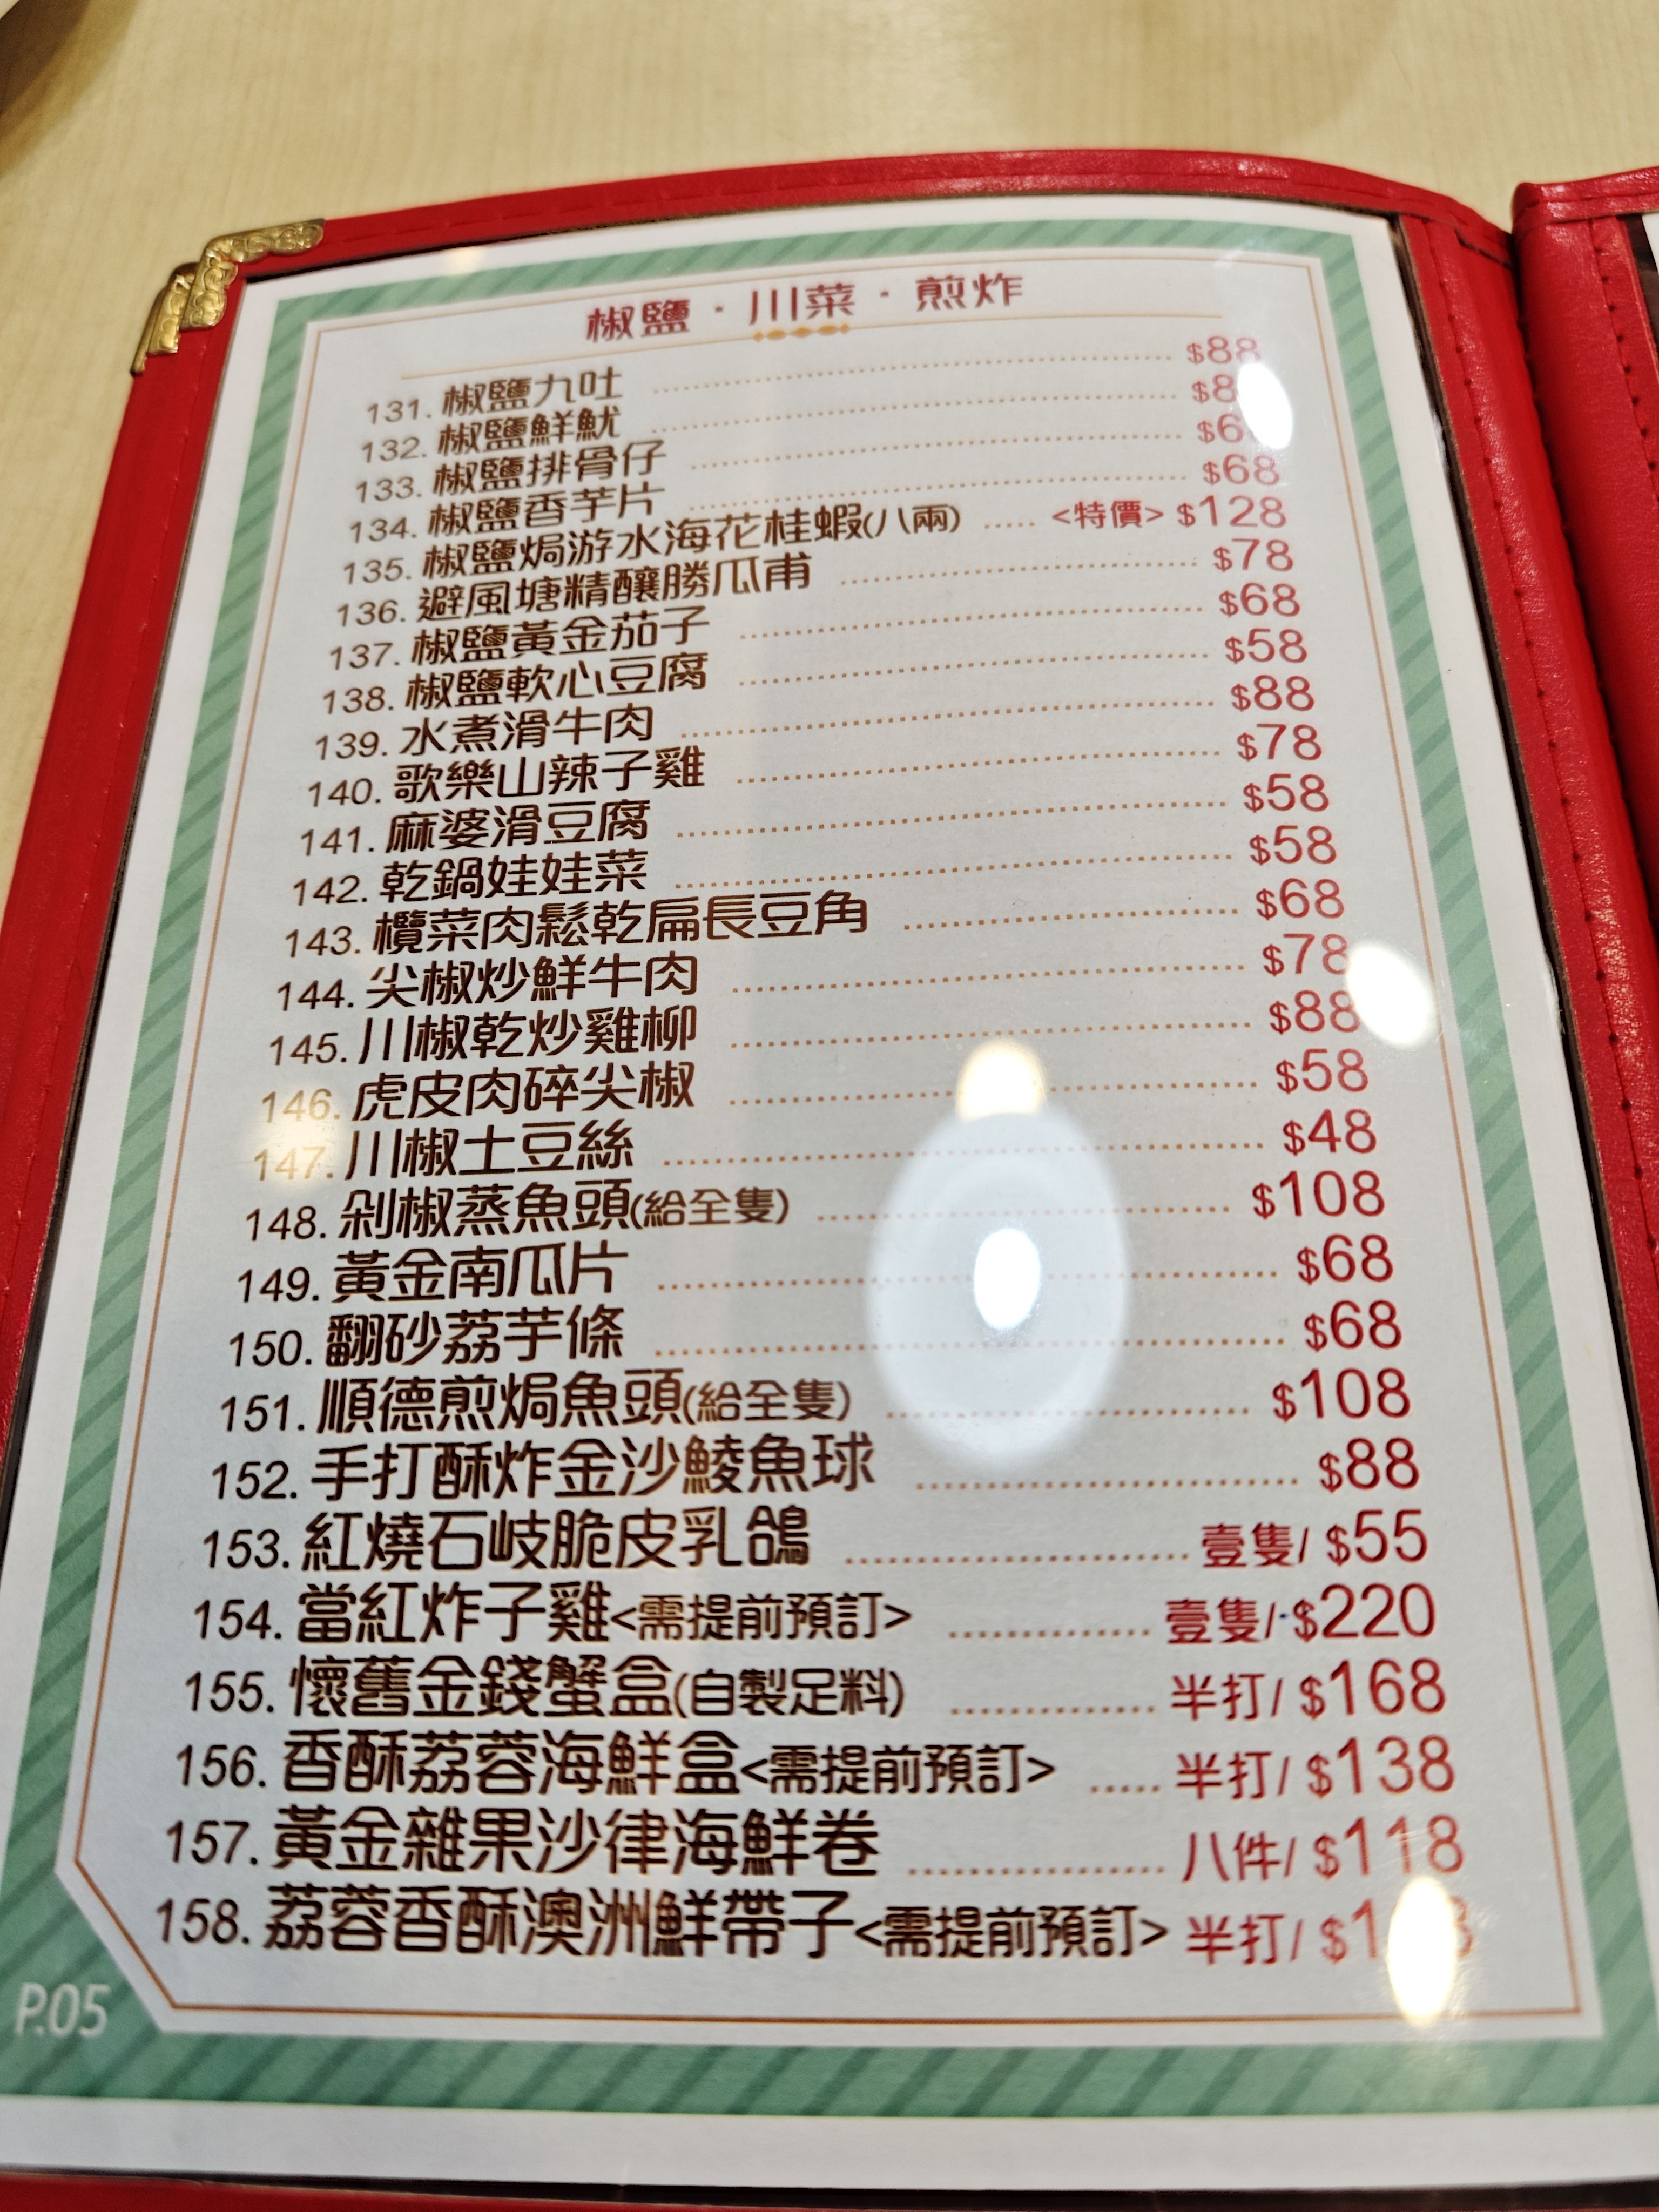 椒鹽·川菜·煎炸
131. 椒鹽九吐 $88
132. 椒鹽鮮魷
133. 椒鹽排骨仔
134. 椒鹽香芋片 $68
135. 椒鹽焗游水海花桂蝦(八兩) <特價> $128
136. 避風塘精釀勝瓜甫 $78
137. 椒鹽黃金茄子 $68
138. 椒鹽軟心豆腐 $58
139. 水煮滑牛肉 $88
140. 歌樂山辣子雞 $78
141. 麻婆滑豆腐 $58
142. 乾鍋娃娃菜 $58
143. 欖菜肉鬆乾扁長豆角 $68
144. 尖椒炒鮮牛肉 $78
145. 川椒乾炒雞柳 $88
146. 虎皮肉碎尖椒 $58
147. 川椒土豆絲 $48
148. 剁椒蒸魚頭(給全隻) $108
149. 黃金南瓜片 $68
150. 翻砂荔芋條 $68
151. 順德煎焗魚頭(給全隻) $108
152. 手打酥炸金沙鯪魚球 $88
153. 紅燒石岐脆皮乳鴿 壹隻/ $55
154. 當紅炸子雞<需提前預訂> 壹隻/ $220
155. 懷舊金錢蟹盒(自製足料) 半打/ $168
156. 香酥荔蓉海鮮盒<需提前預訂> 半打/ $138
157. 黃金雜果沙律海鮮卷 八件/ $118
158. 荔蓉香酥澳洲鮮帶子<需提前預訂> 半打/
P.05